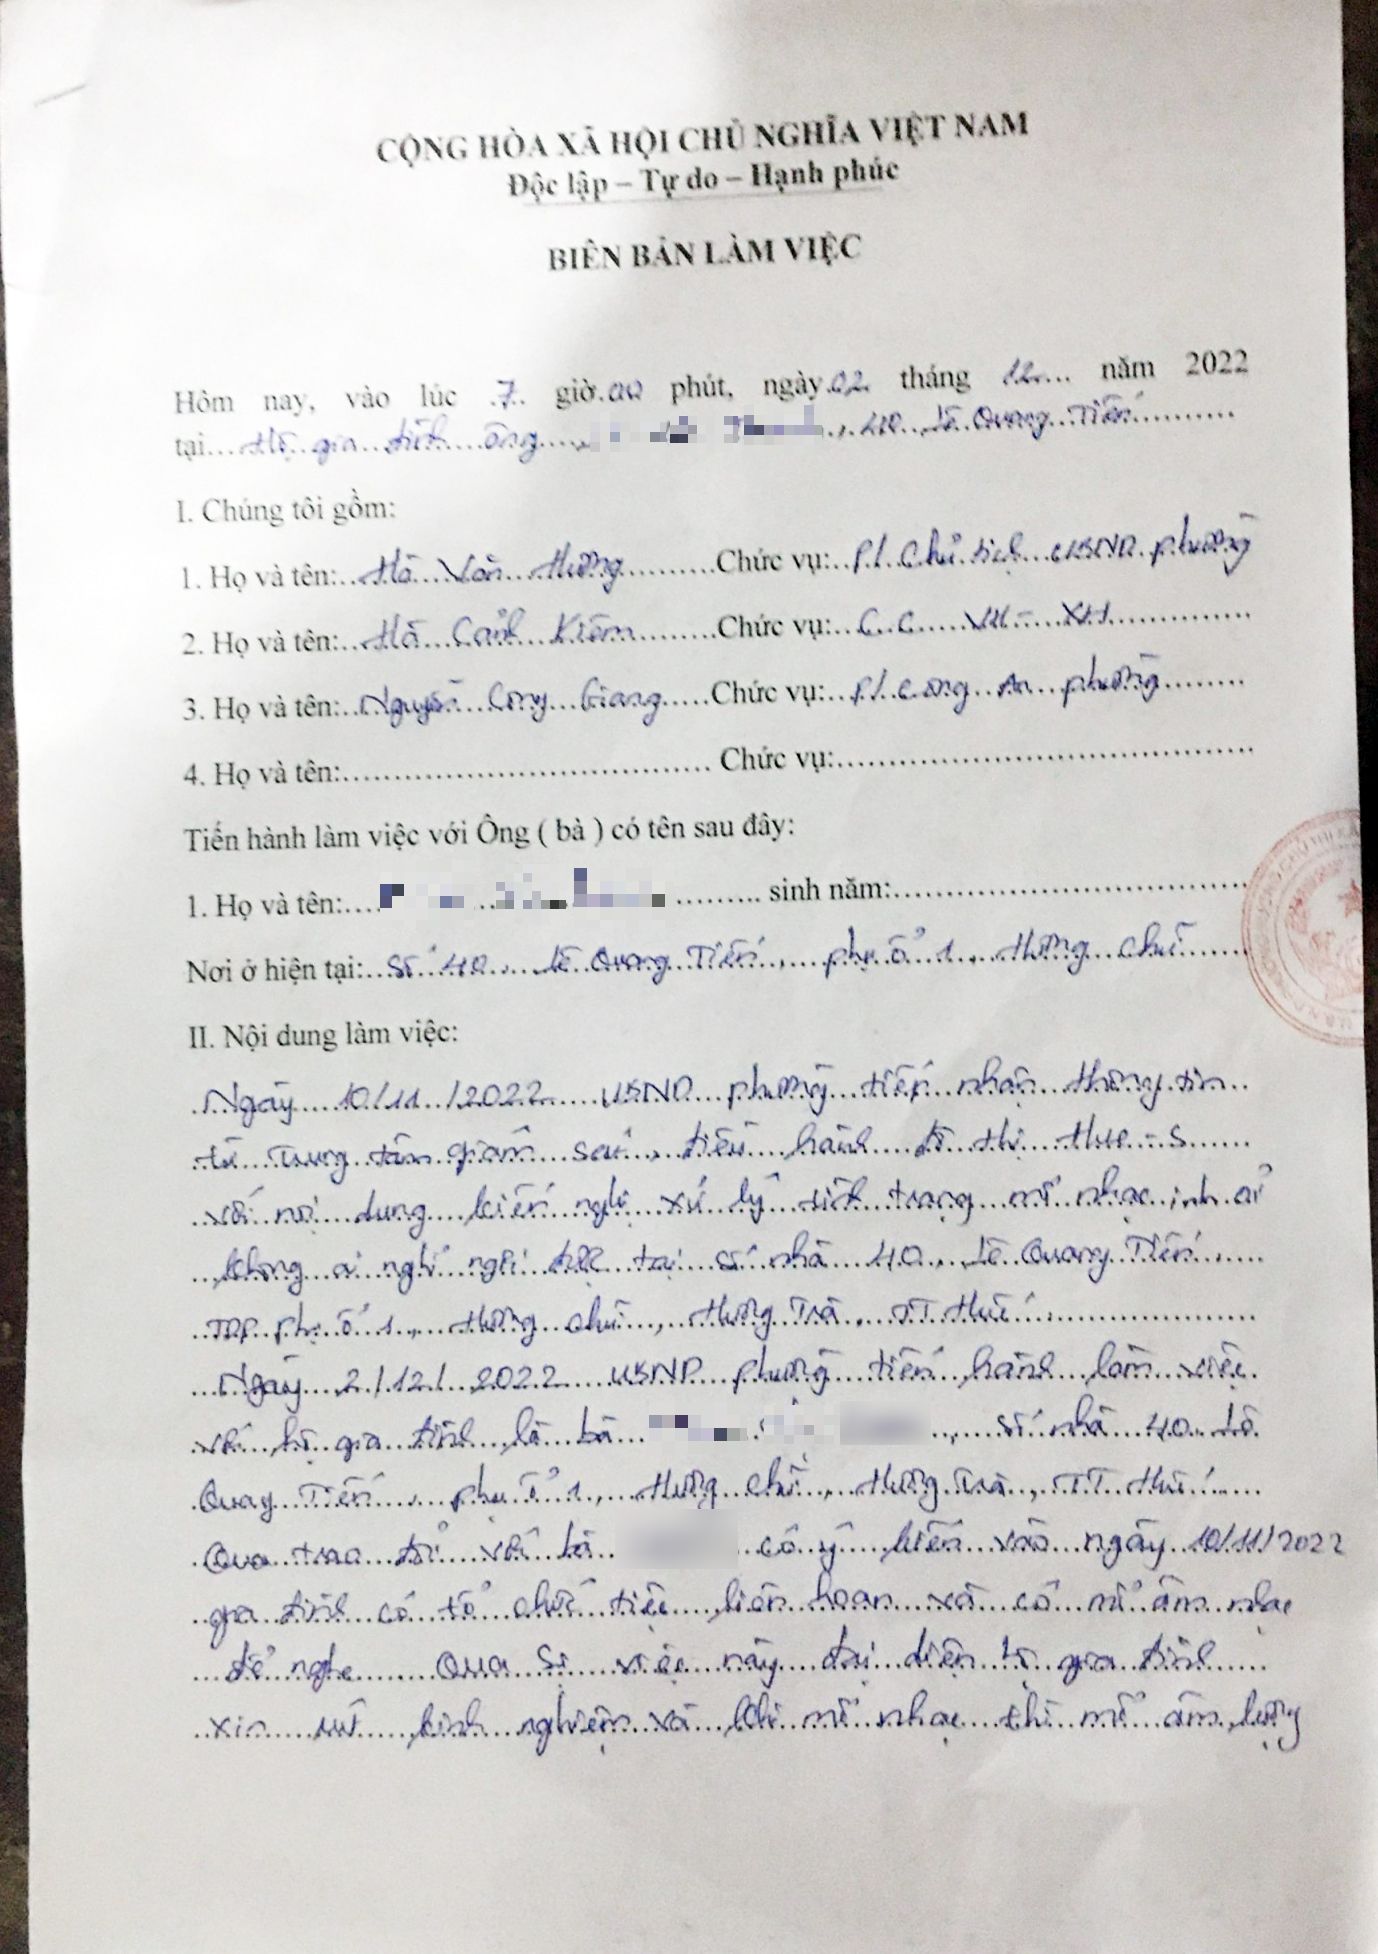 CỘNG HÒA XÃ HỘI CHỦ NGHĨA VIỆT NAM
Độc lập – Tự do – Hạnh phúc
BIÊN BẢN LÀM VIỆC
Hôm nay, vào lúc 7 giờ 00 phút, ngày 02 tháng 12 năm 2022
tại Hộ gia đình ông , 40 Lê Quang Tiến
I. Chúng tôi gồm:
1. Họ và tên: Hà Văn Hường Chức vụ: P. Chủ tịch UBND phường
2. Họ và tên: Hà Cảnh Kiêm Chức vụ: C.C VH - XH
3. Họ và tên: Nguyễn Công Giang Chức vụ: P. Công An phường
4. Họ và tên: Chức vụ:
Tiến hành làm việc với Ông ( bà ) có tên sau đây:
1. Họ và tên: sinh năm:
Nơi ở hiện tại: Số 40, Lê Quang Tiến, phụ ổ 1, Hương Chữ
II. Nội dung làm việc:
Ngày 10/11/2022 UBND phường tiếp nhận thông tin
từ Trung tâm giám sát, điều hành đô thị Hue-S
với nội dung kiến nghị xử lý tình trạng mở nhạc
không ai nghỉ ngơi được tại số nhà 40, Lê Quang Tiến,
TDP phụ ổ 1, Hương Chữ, Hương Trà, TT Huế.
Ngày 2/12/2022 UBND phường tiến hành làm việc
với hộ gia đình là bà , số nhà 40 Lê
Quang Tiến, phụ ổ 1, Hương Chữ, Hương Trà, TT Huế.
Qua trao đổi với bà có ý kiến vào ngày 10/11/2022
gia đình có tổ chức tiệc liên hoan và có mở âm nhạc
để nghe. Qua sự việc này đại diện hộ gia đình
xin rút kinh nghiệm và khi mở nhạc thì mở âm lượng